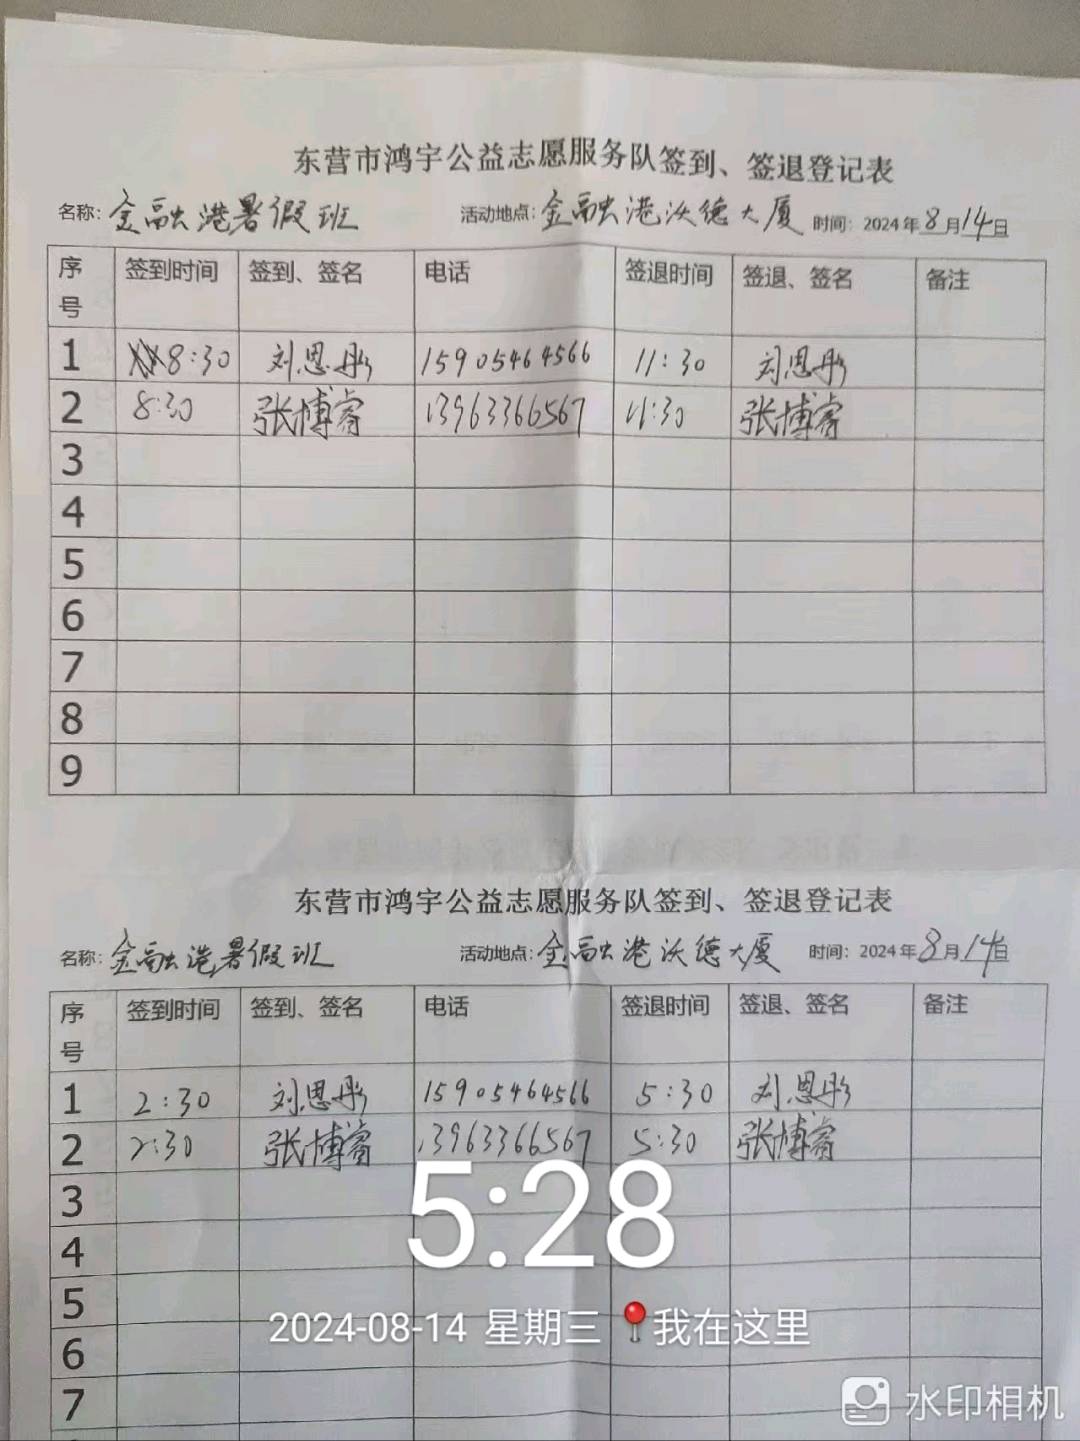 东营市鸿宇公益志愿服务队签到、签退登记表
名称：金融港暑假班 活动地点：金融港沃德大厦 时间：2024年8月14日
序号 签到时间 签到、签名 电话 签退时间 签退、签名 备注
1 8:30 刘恩彤 15905464566 11:30 刘恩彤
2 8:30 张博睿 13963366567 11:30 张博睿
3
4
5
6
7
8
9
东营市鸿宇公益志愿服务队签到、签退登记表
名称：金融港暑假班 活动地点：金融港沃德大厦 时间：2024年8月14日
序号 签到时间 签到、签名 电话 签退时间 签退、签名 备注
1 2:30 刘恩彤 15905464566 5:30 刘恩彤
2 2:30 张博睿 13963366567 5:30 张博睿
3
4
5
6
7
5:28
2024-08-14 星期三 📍我在这里
水印相机